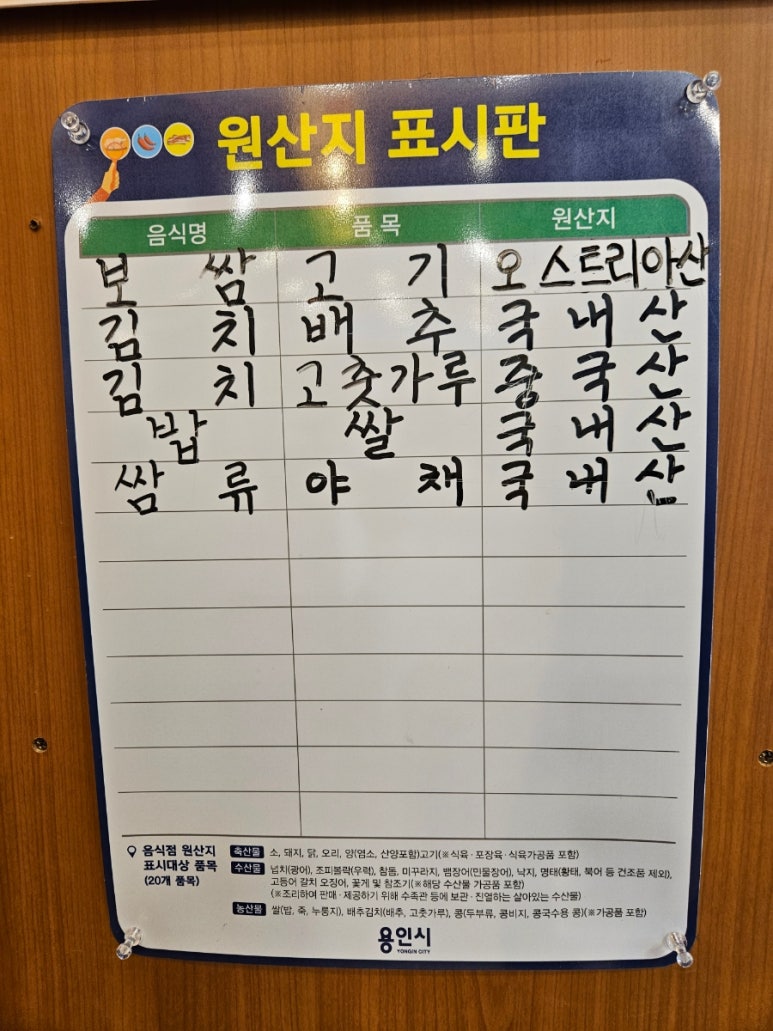 원산지 표시판
음식명 품목 원산지
보쌈 고기 오스트리아산
김치 배추 국내산
김치 고춧가루 중국산
밥 쌀 국내산
쌈류 야채 국내산
음식점 원산지
표시대상 품목
(20개 품목)
축산물 소, 돼지, 닭, 오리, 양(염소, 산양포함)고기(※식육·포장육·식육가공품 포함)
수산물 넙치(광어), 조피볼락(우럭), 참돔, 미꾸라지, 뱀장어(민물장어), 낙지, 명태(황태, 북어 등 건조품 제외),
고등어 갈치 오징어, 꽃게 및 참조기(※해당 수산물 가공품 포함)
(※조리하여 판매·제공하기 위해 수족관 등에 보관·진열하는 살아있는 수산물)
농산물 쌀(밥, 죽, 누룽지), 배추김치(배추, 고춧가루), 콩(두부류, 콩비지, 콩국수용 콩)(※가공품 포함)
용인시
YONGIN CITY